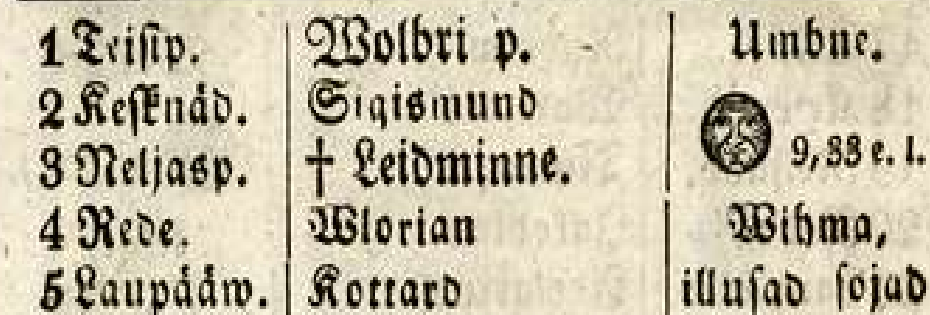 1 Teisip. Wolbri p. Umbne.
2 Keſknäd. Sigismund
3 Neljasp. † Leidminne. 9,33 e. l.
4 Rede. Wlorian Wihma,
5 Laupääw. Kottard illuſad ſojad